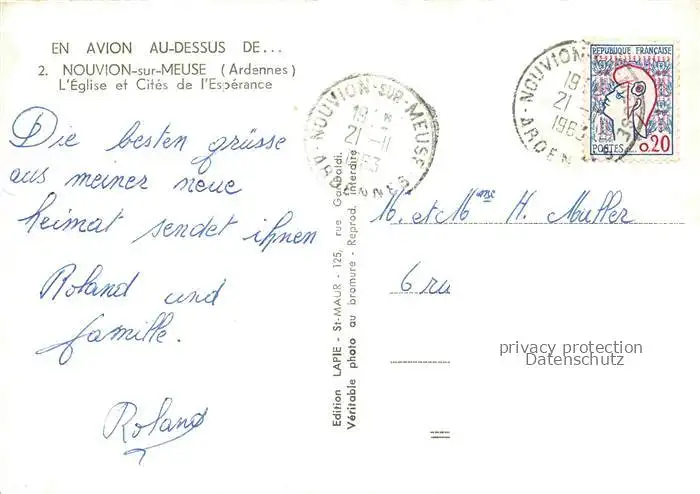 EN AVION AU-DESSUS DE...
2. NOUVION-sur-MEUSE (Ardennes)
L'Église et Cités de l'Espérance
Die besten grüsse
aus meiner neue
heimat sendet ihnen
Roland und
famille.
Roland
NOUVION-SUR-MEUSE
19 H
21-11
1963
ARDENNES
Edition LAPIE - St-MAUR - 125, rue Garibaldi.
Véritable photo au bromure - Reprod. interdite
NOUVION
19
21
1963
ARDENNES
RÉPUBLIQUE FRANÇAISE
POSTES
0.20
M. et Mme H. Muller
6 ru
privacy protection
Datenschutz